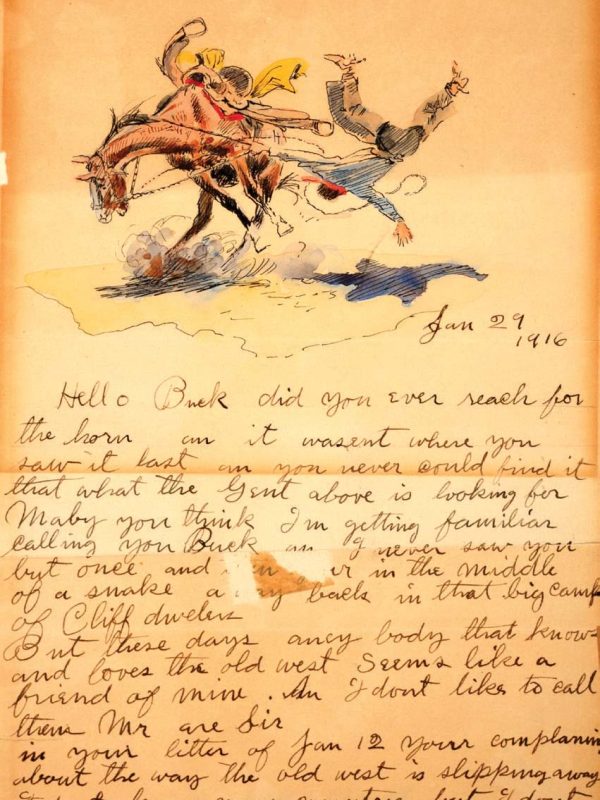 Jan 29
1916
Hello Buck did you ever reach for
the horn an it wasent where you
saw it last an you never could find it
that what the Gent above is looking for
Maby you think I'm getting familiar
calling you Buck an I never saw you
but once and in the middle
of a snake a way back in that big camp
of Cliff dwelers
But these days aney body that knows
and loves the old west Seems like a
friend of mine. An I dont like to call
them Mr are Sir
in your litter of Jan 12 your complaning
about the way the old west is slipping away